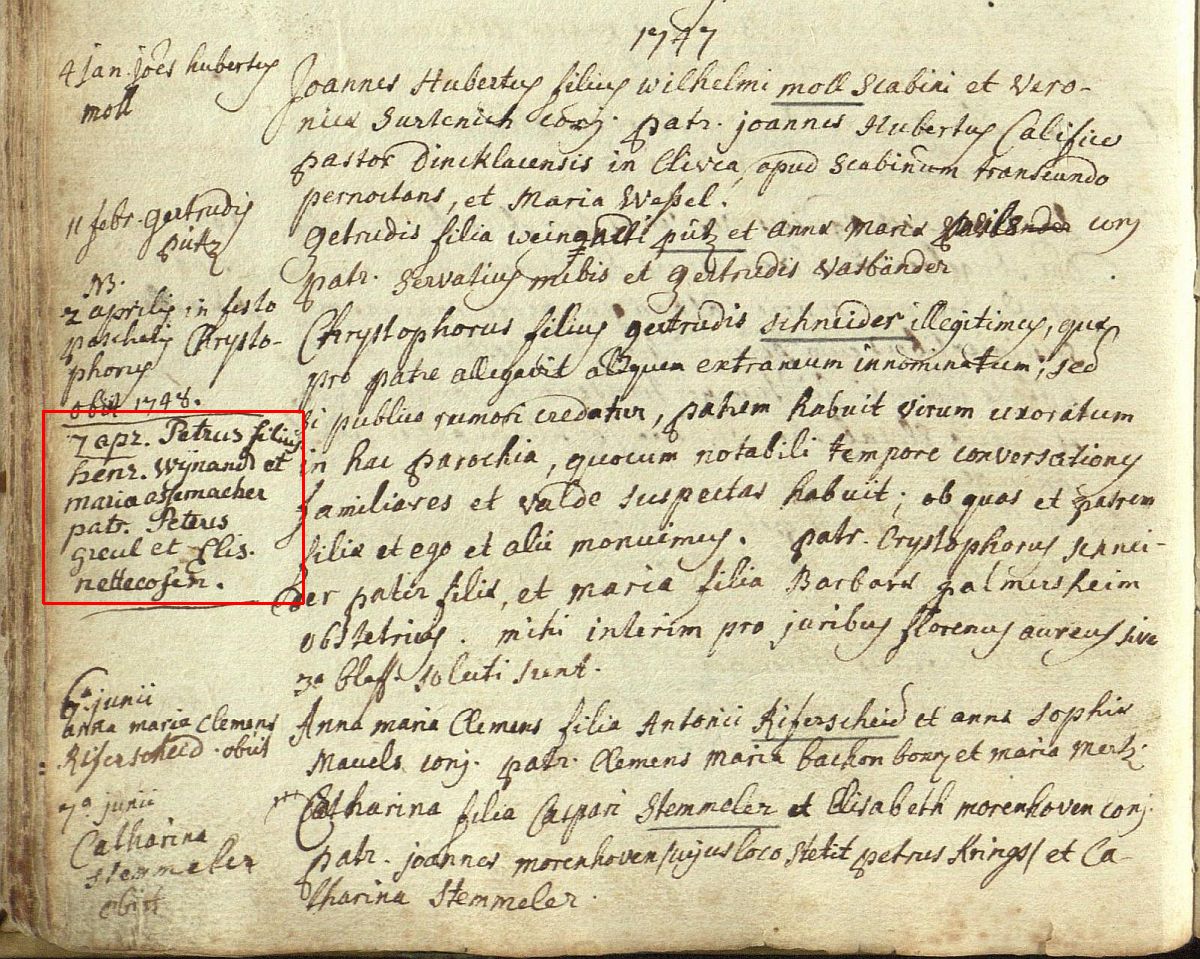 1747
4 Jan. Joes hubertus
moll
Joannes Hubertus filius wilhelmi moll Scabini et Vero-
nica Surtenich conj. patr. joannes Hubertus Califice
pastor Dincklacensis in Clivia, apud Scabinum transeundo
pernoctans, et Maria Weßel.
11 febr. gertrudis
pütz
getrudis filia weingarti pütz et anna maria conj
patr. Servatius mebis et gertrudis Vasbänder
NB.
2 aprilis in festo
paschatis Chrysto-
phorus
obiit 1748.
Chrystophorus filius gertrudis schneider illegitimus, quæ
pro patre allegavit aliquem extraneum innominatum; sed
si publico rumori credatur, patrem habuit virum uxoratum
in hac parochia, quocum notabili tempore conversationes
familiares et valde suspectas habuit; ob quas et patrem
filiæ et ego et alii monuimus. patr. Crystophorus schnei-
der pater filiæ, et maria filia Barbara palmersheim
obstetricis. mihi interim pro juribus florenus aureus sive
30 blaff. soluti sunt.
7 apr. Petrus filius
henr. wijnand et
maria assemacher
patr. Petrus
greul et Elis.
nettecosen.
6a junii
anna maria Clemens
Rifferscheid. obiit
Anna maria Clemens filia Antonii Rifferscheid et anna Sophia
Mauels conj. patr. Clemens maria bachon et maria mertz.
7a junii
Catharina
Stemmeler
obiit
Catharina filia Caspari Stemmeler et Elisabeth morenhoven conj.
patr. joannes morenhoven /cujus loco stetit petrus Krings/ et Ca-
tharina Stemmeler.